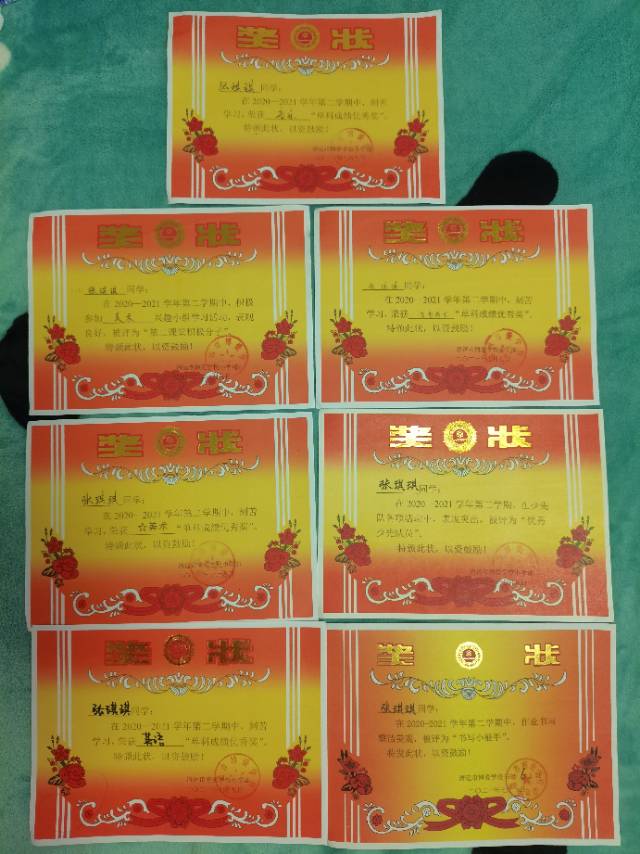 奖 状
张琪琪同学：
在2020—2021学年第二学期中，刻苦
学习，荣获 音乐 “单科成绩优秀奖”。
特颁此状，以资鼓励！
奖 状
张琪琪同学：
在2020—2021学年第二学期中，积极
参加 美术 兴趣小组学习活动，表现
良好，被评为“第二课堂积极分子”。
特颁此状，以资鼓励！
奖 状
张琪琪同学：
在2020—2021学年第二学期中，刻苦
学习，荣获 “单科成绩优秀奖”。
特颁此状，以资鼓励！
奖 状
张琪琪同学：
在2020—2021学年第二学期中，刻苦
学习，荣获 美术 “单科成绩优秀奖”。
特颁此状，以资鼓励！
奖 状
张琪琪同学：
在2020—2021学年第二学期，在少先
队各项活动中，表现突出，被评为“优秀
少先队员”。
特颁此状，以资鼓励！
奖 状
张琪琪同学：
在2020—2021学年第二学期中，刻苦
学习，荣获 英语 “单科成绩优秀奖”。
特颁此状，以资鼓励！
奖 状
张琪琪同学：
在2020-2021学年第二学期中，作业书写
整洁美观，被评为“书写小能手”。
特发此状，以资鼓励！